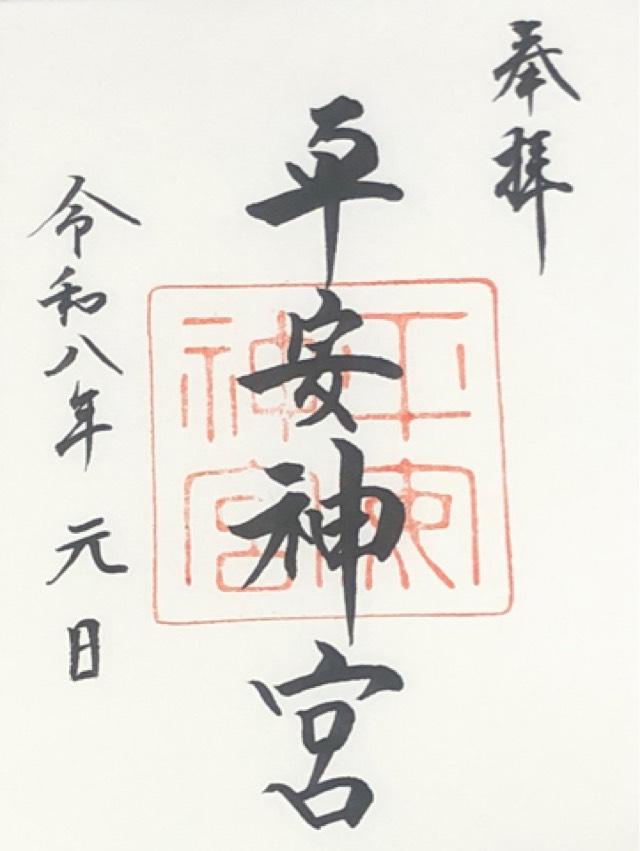 奉拝
平安神宮
平安神宮
令和八年 元日